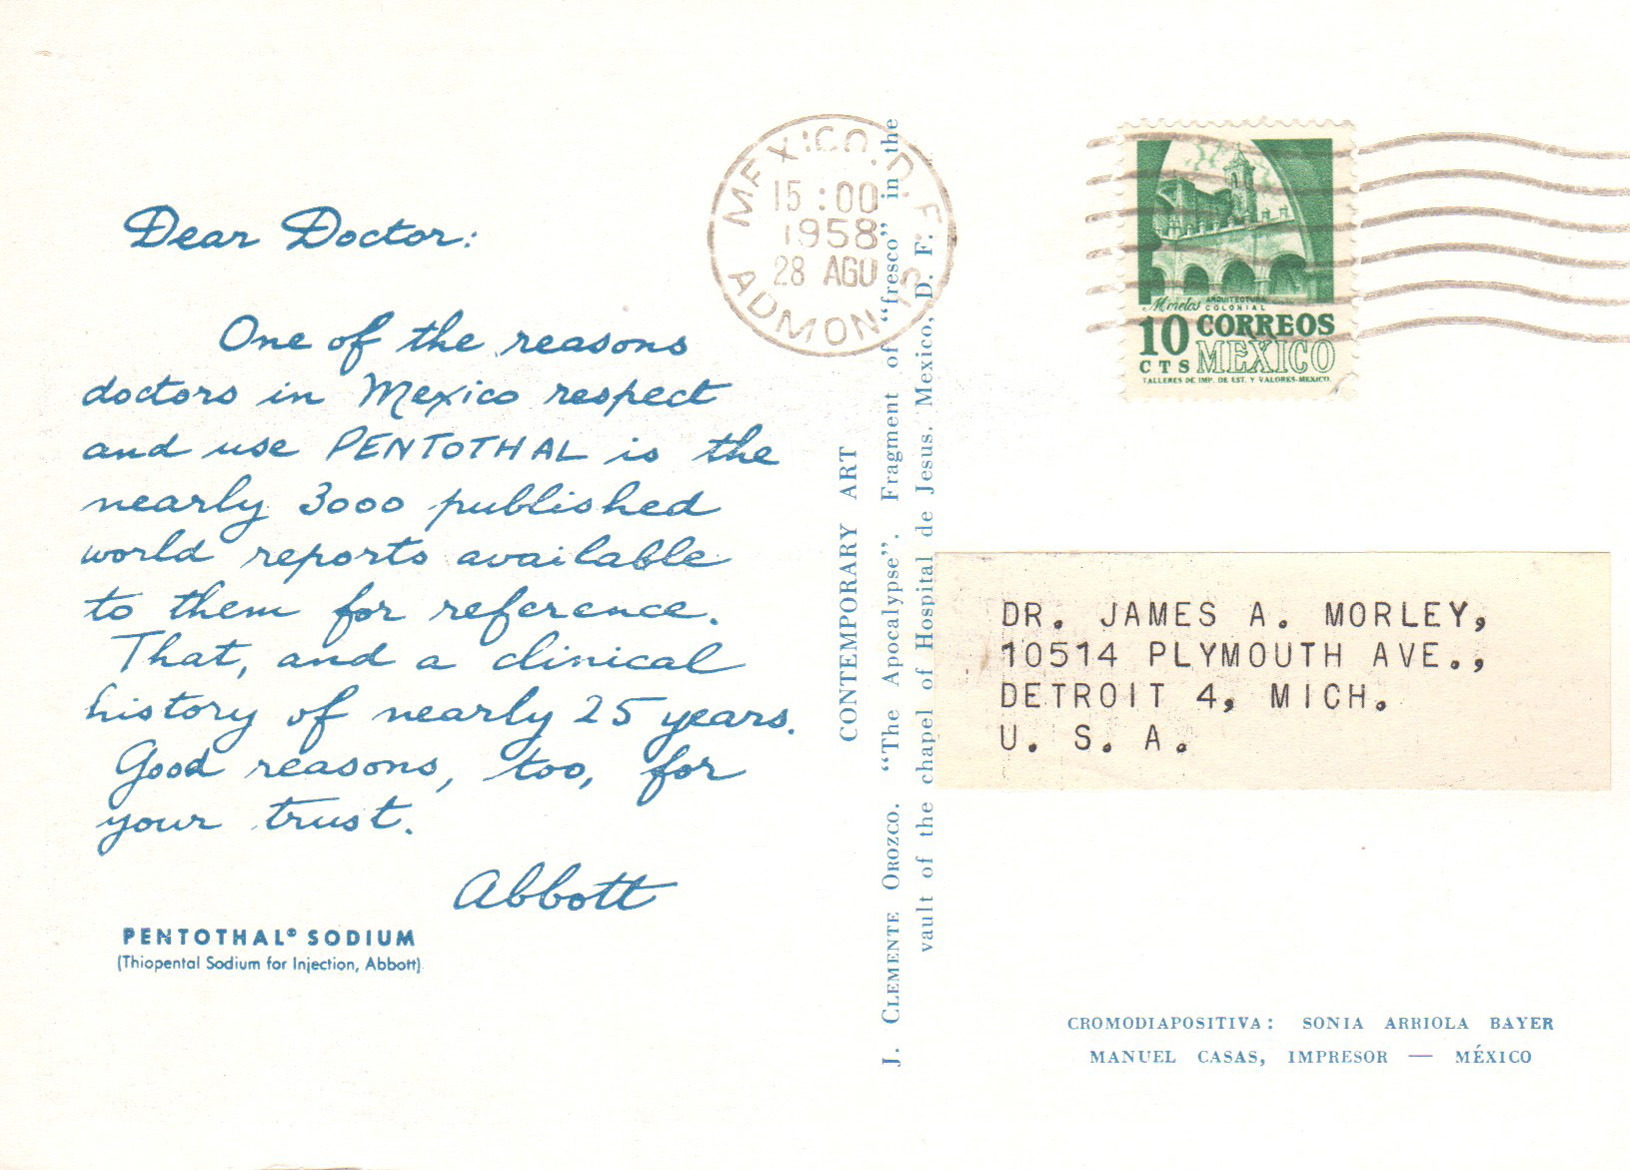 Dear Doctor:
One of the reasons
doctors in Mexico respect
and use PENTOTHAL is the
nearly 3000 published
world reports available
to them for reference.
That, and a clinical
history of nearly 25 years.
Good reasons, too, for
your trust.
Abbott
PENTOTHAL® SODIUM
(Thiopental Sodium for Injection, Abbott)
CONTEMPORARY ART
J. CLEMENTE OROZCO. "The Apocalypse". Fragment of "fresco" in the
vault of the chapel of Hospital de Jesus. Mexico, D. F.
MEXICO, D. F.
15:00
1958
28 AGU
ADMON
Morelos ARQUITECTURA
COLONIAL
10 CORREOS
CTS MEXICO
TALLERES DE IMP. DE EST. Y VALORES-MEXICO.
DR. JAMES A. MORLEY,
10514 PLYMOUTH AVE.,
DETROIT 4, MICH.
U. S. A.
CROMODIAPOSITIVA: SONIA ARRIOLA BAYER
MANUEL CASAS, IMPRESOR — MÉXICO